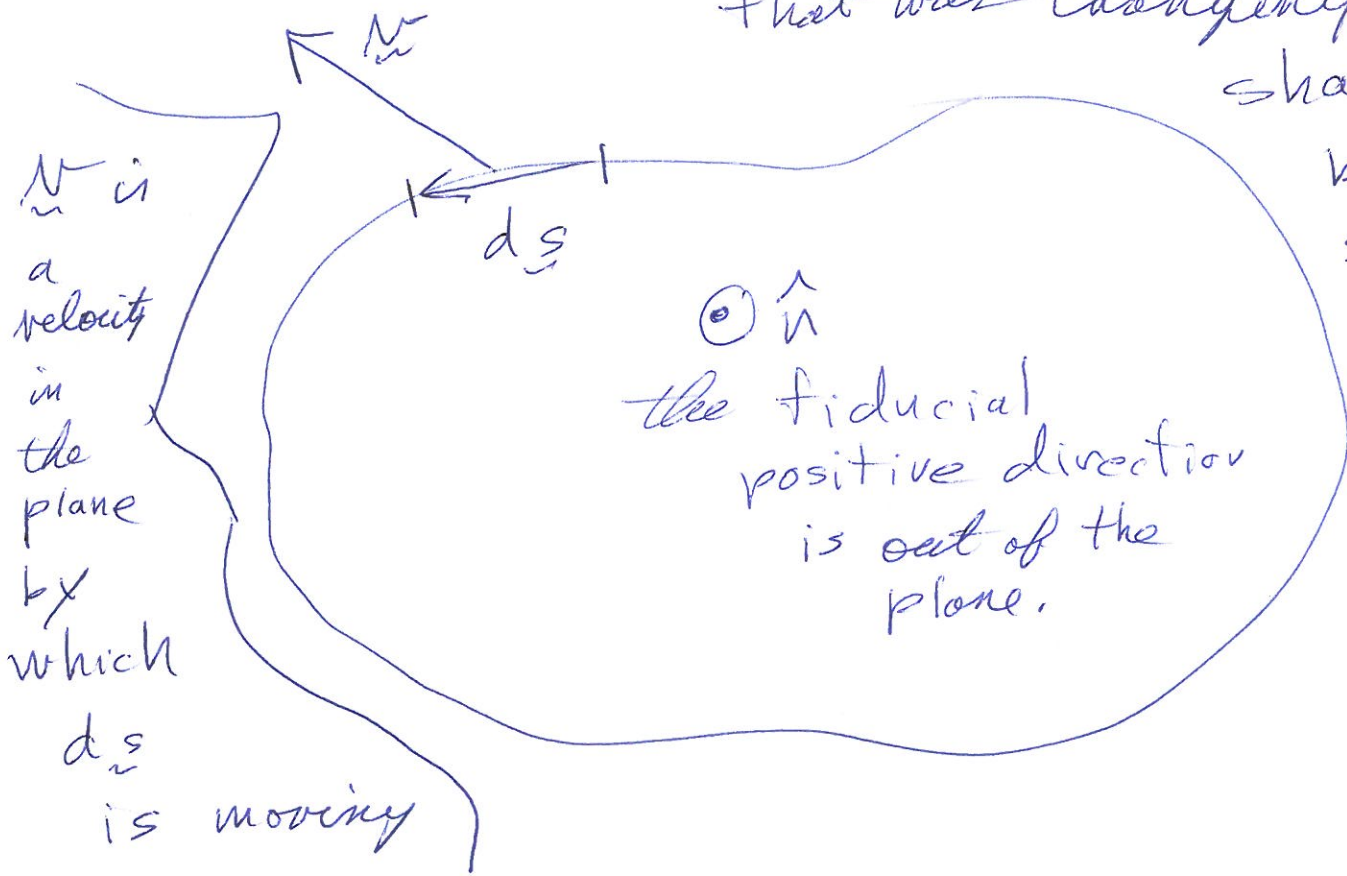 that was changing
sha
v
v is
a
velocity
in
the
plane
by
which
ds
is moving
ds
n̂
the fiducial
positive direction
is out of the
plane.